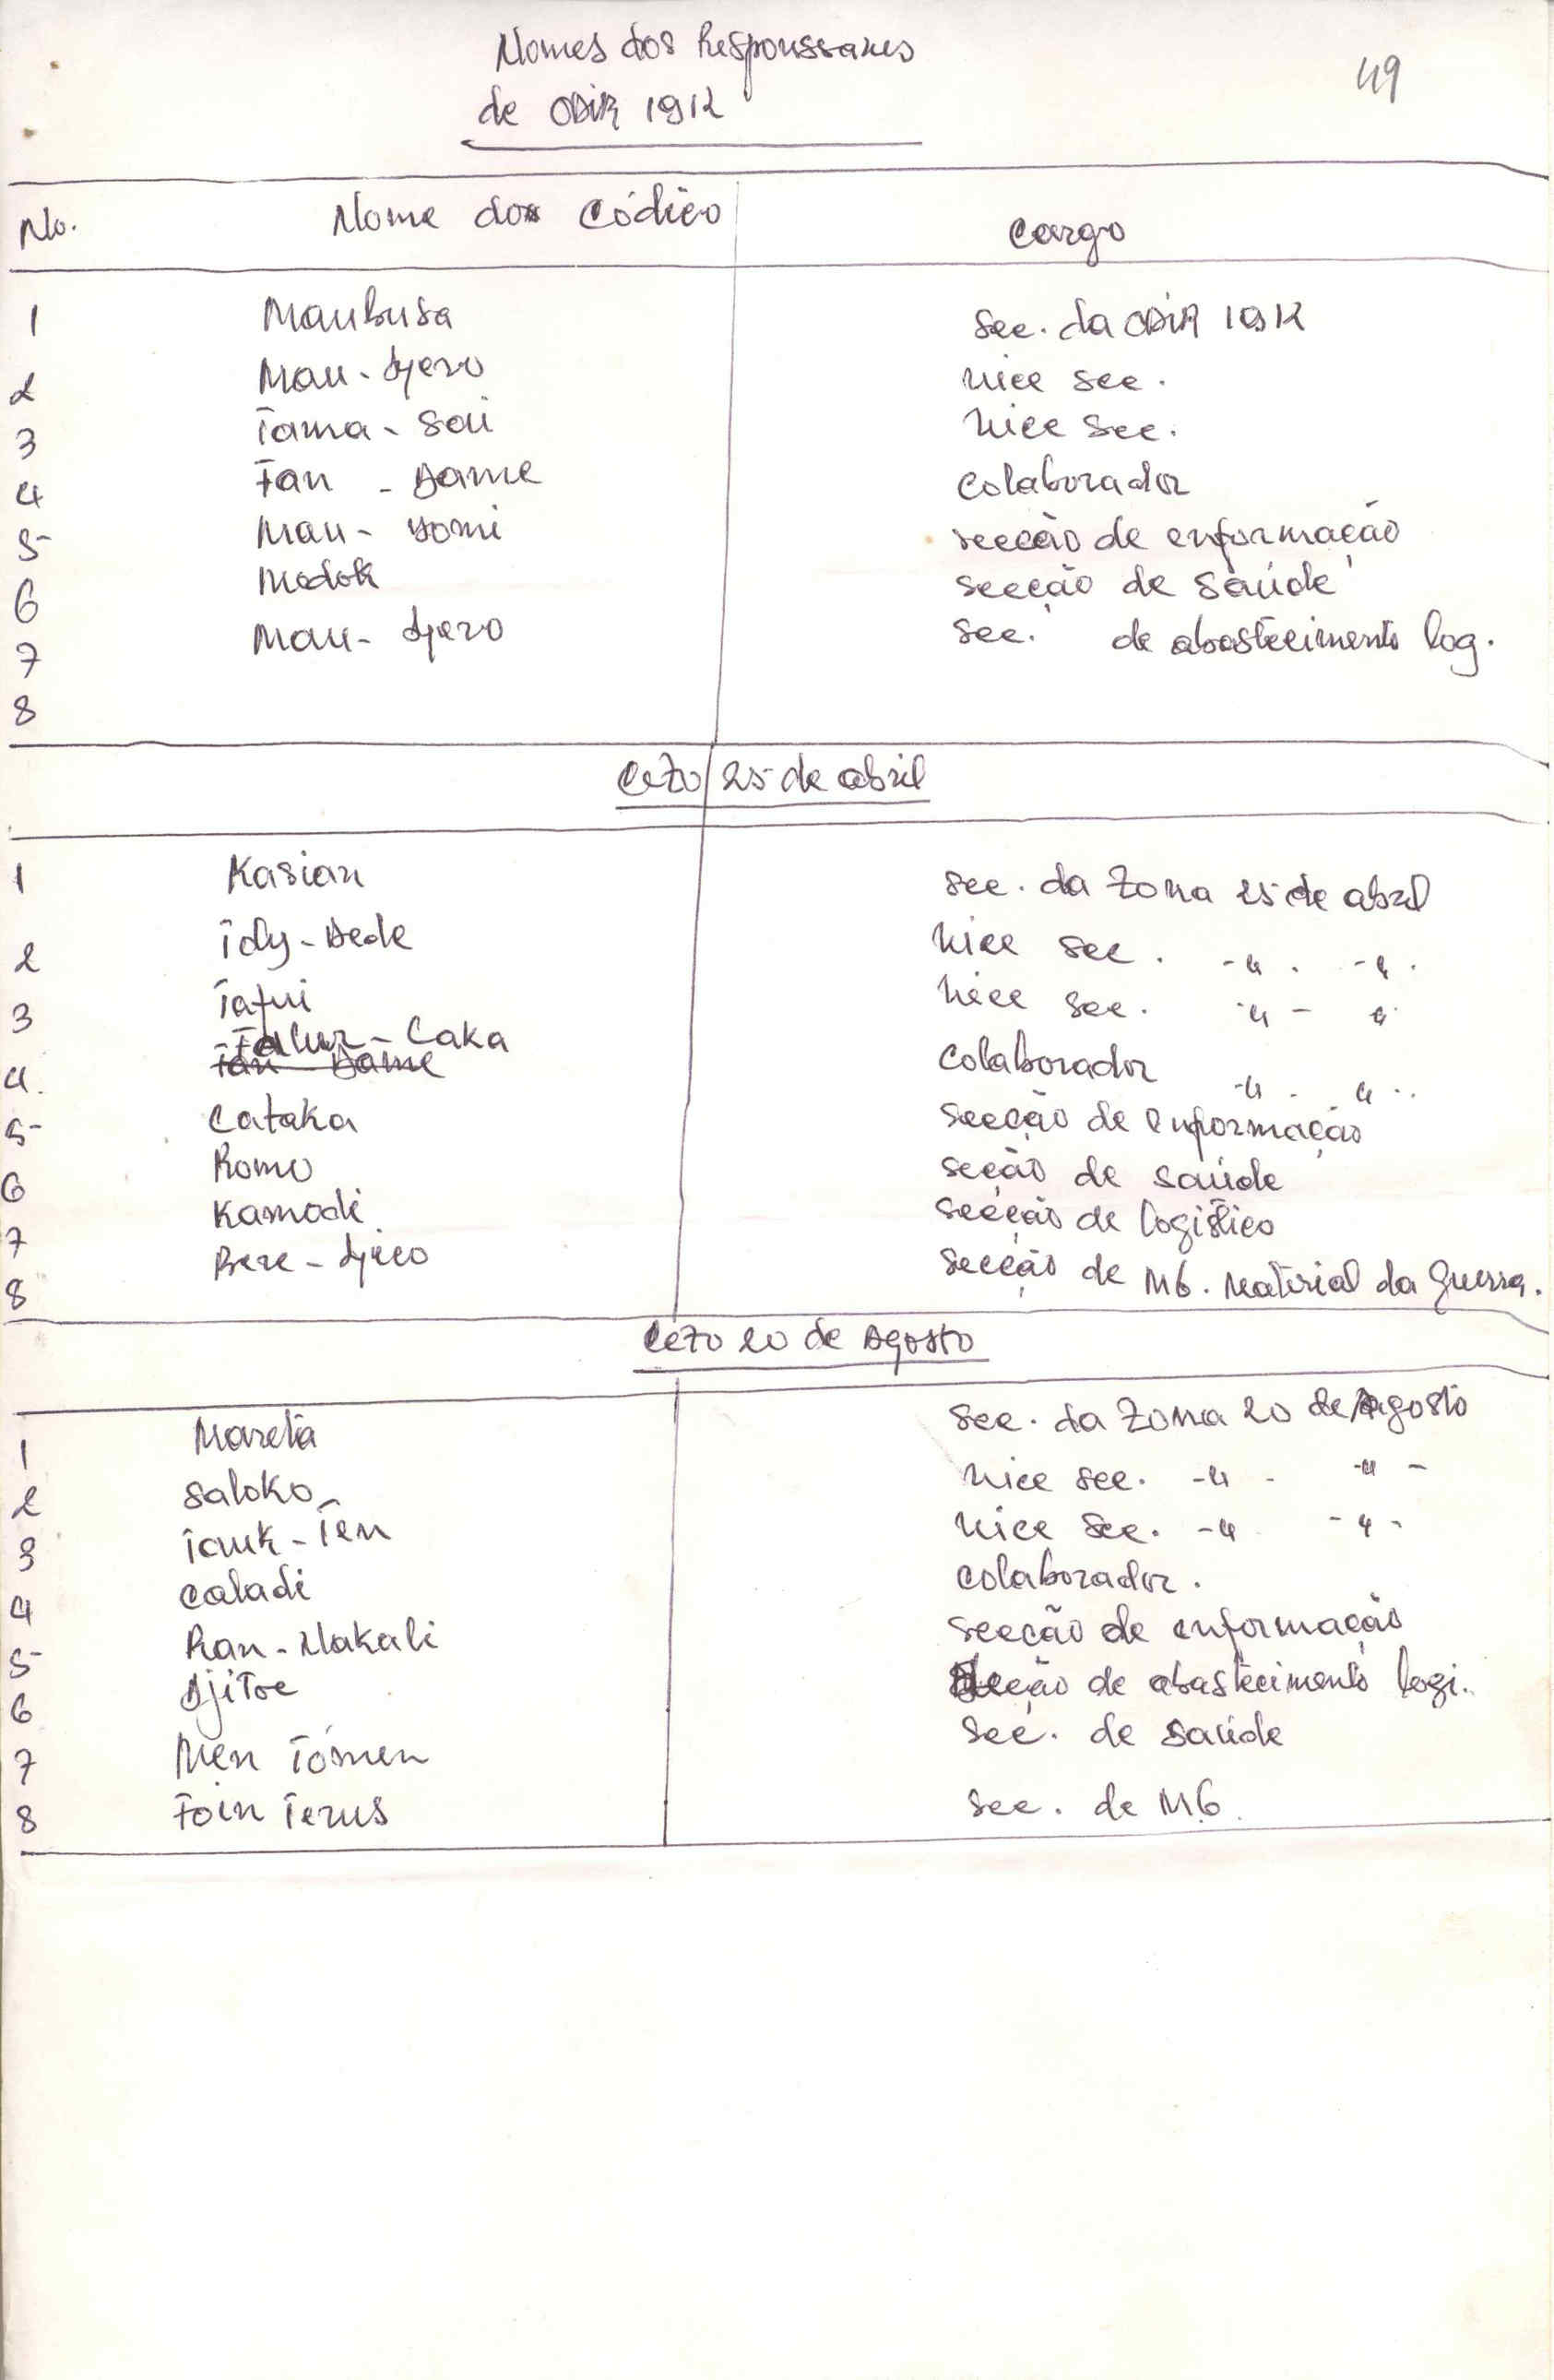 Nomes dos Responssaves
49
de ODIR 1912
No. Nome dos Códico Cargo
1 Maubusa sec. da ODIR 1912
2 Mau-djero vice sec.
3 Tama-Soi vice sec.
4 Fan - Dame colaborador
5 Mau-Domi secção de enformação
6 Modok secção de Saúde
7 Mau-djero sec. de abastecimento log.
8
CeZo 25 de abril
1 Kasian sec. da Zona 25 de abril
2 Tdy-Dede vice sec. -"- -"-
3 Tafui vice sec. "- "
4. Falur-Laka colaborador -"- "
5 Cataka secção de enformação
6 Romo seção de saúde
7 Kamodi secção de logistico
8 Bere-djico secção de M6. Material da Guerra.
CeZo 20 de Agosto
1 Mareta sec. da Zona 20 de Agosto
2 Saloko vice sec. -"- -"-
3 Tauk-Ten vice sec. -" -"-
4 Caladi colaborador.
5 Ran-Nakali secção de enformação
6 Djitoe secção de abastecimento logi.
7 Men Tomen sec. de saúde
8 Foin Terus sec. de M6.